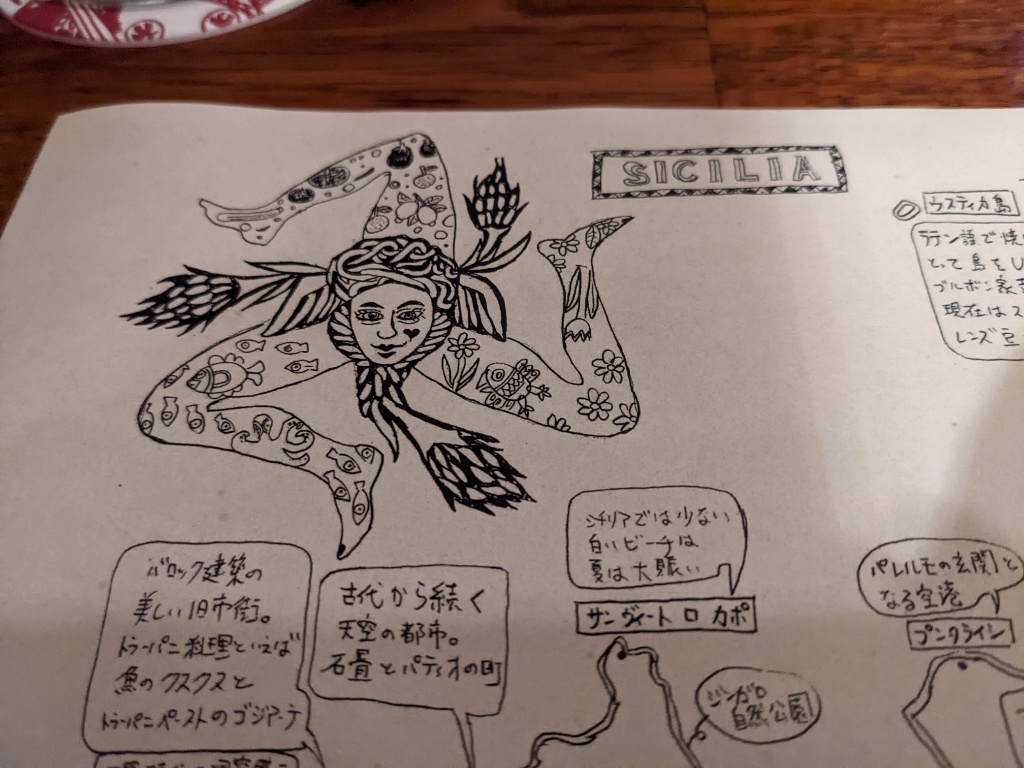 SICILIA
ウスティカ島
ラテン語で焼
とって 島を
ブルボン家
現在はス
レンズ豆
シチリアでは少ない
白いビーチは
夏は大賑い
サンヴィート ロ カポ
パレルモの玄関と
なる空港
プンタライシ
バロック建築の
美しい旧市街。
トラーパニ料理といえば
魚のクスクスと
トラーパニペーストのブジアーテ
古代から続く
天空の都市。
石畳とパティオの町
ジンガロ
自然公園